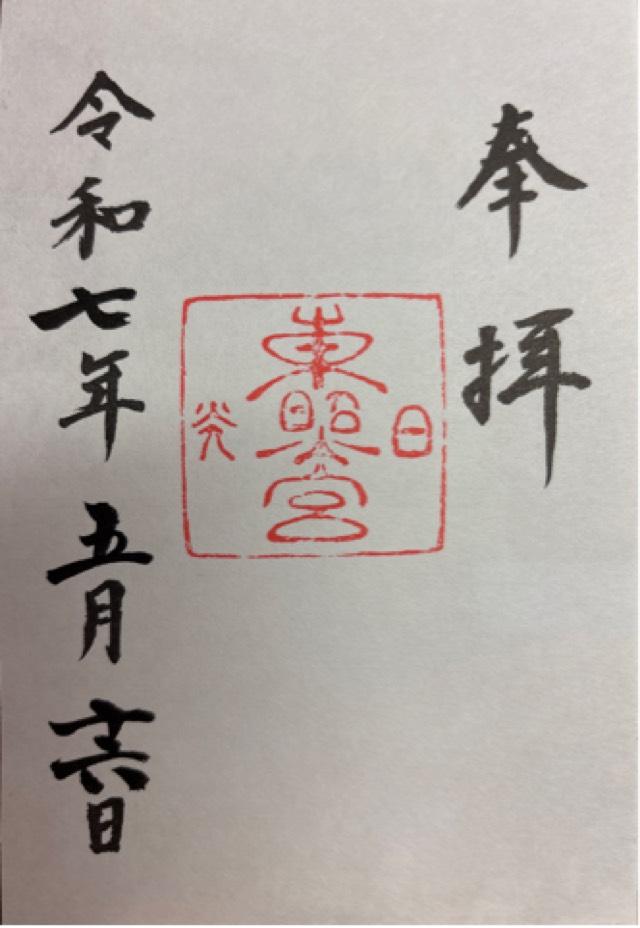 奉拝
日光
東照宮
令和七年五月十六日